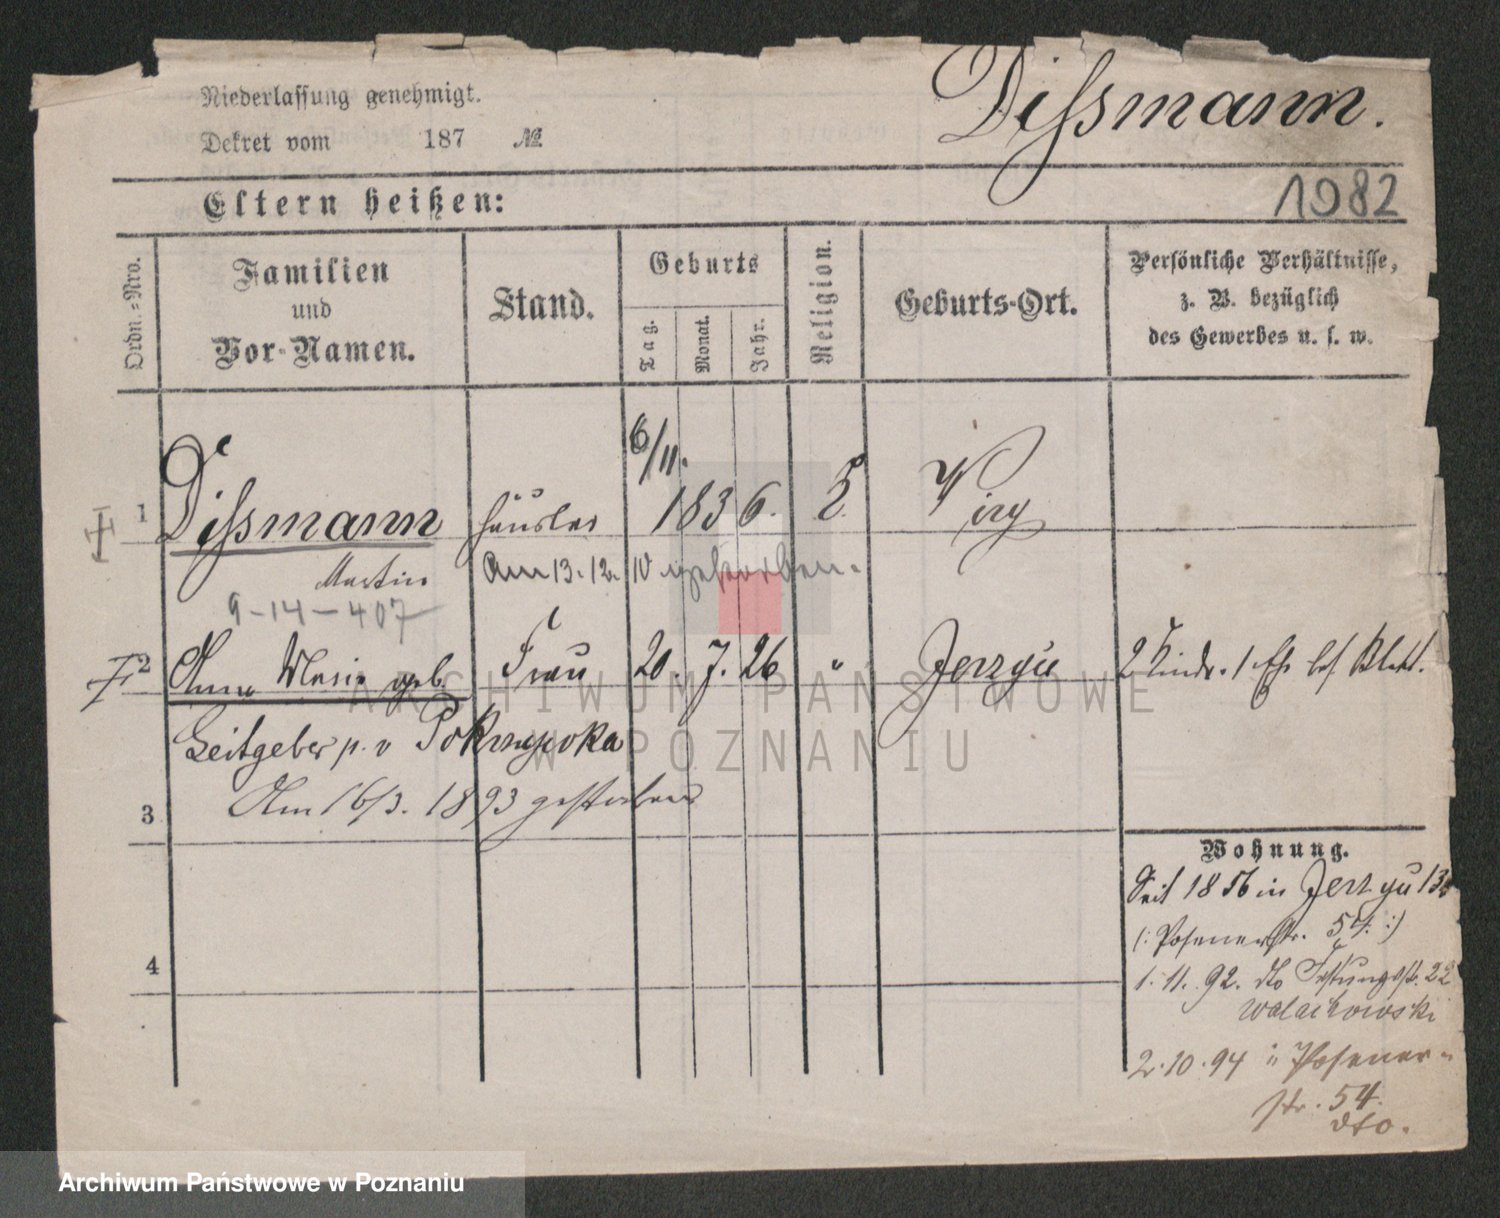 Niederlassung genehmigt.
Dekret vom 187 №
Dissmann.
Eltern heißen:
1982
Ordn.-Nro.
Familien
und
Vor-Namen.
Stand.
Geburts
Tag.
Monat.
Jahr.
Religion.
Geburts-Ort.
Persönliche Verhältnisse,
z. B. bezüglich
des Gewerbes u. s. w.
6/11.
1 Dissmann Häusler 1836.
Martin Am 13. 12. 10 gestorben.
9-14-407
2 Anna Maria geb. Frau 20. 7. 26 " Jerzyce 2 Kinder. 1 Ehe bes. Blatt.
Leitgeber p. v Pokrzywka
3 Am 16/3. 1893 gestorben
Wohnung.
Seit 1856 in Jerzyce
(: Posenerstr. 54. :)
4 1. 11. 92. dto Festungsstr. 22
Walachowski
2. 10. 94 Posener-
str. 54.
dto.
ARCHIWUM PAŃSTWOWE
W POZNANIU
Archiwum Państwowe w Poznaniu